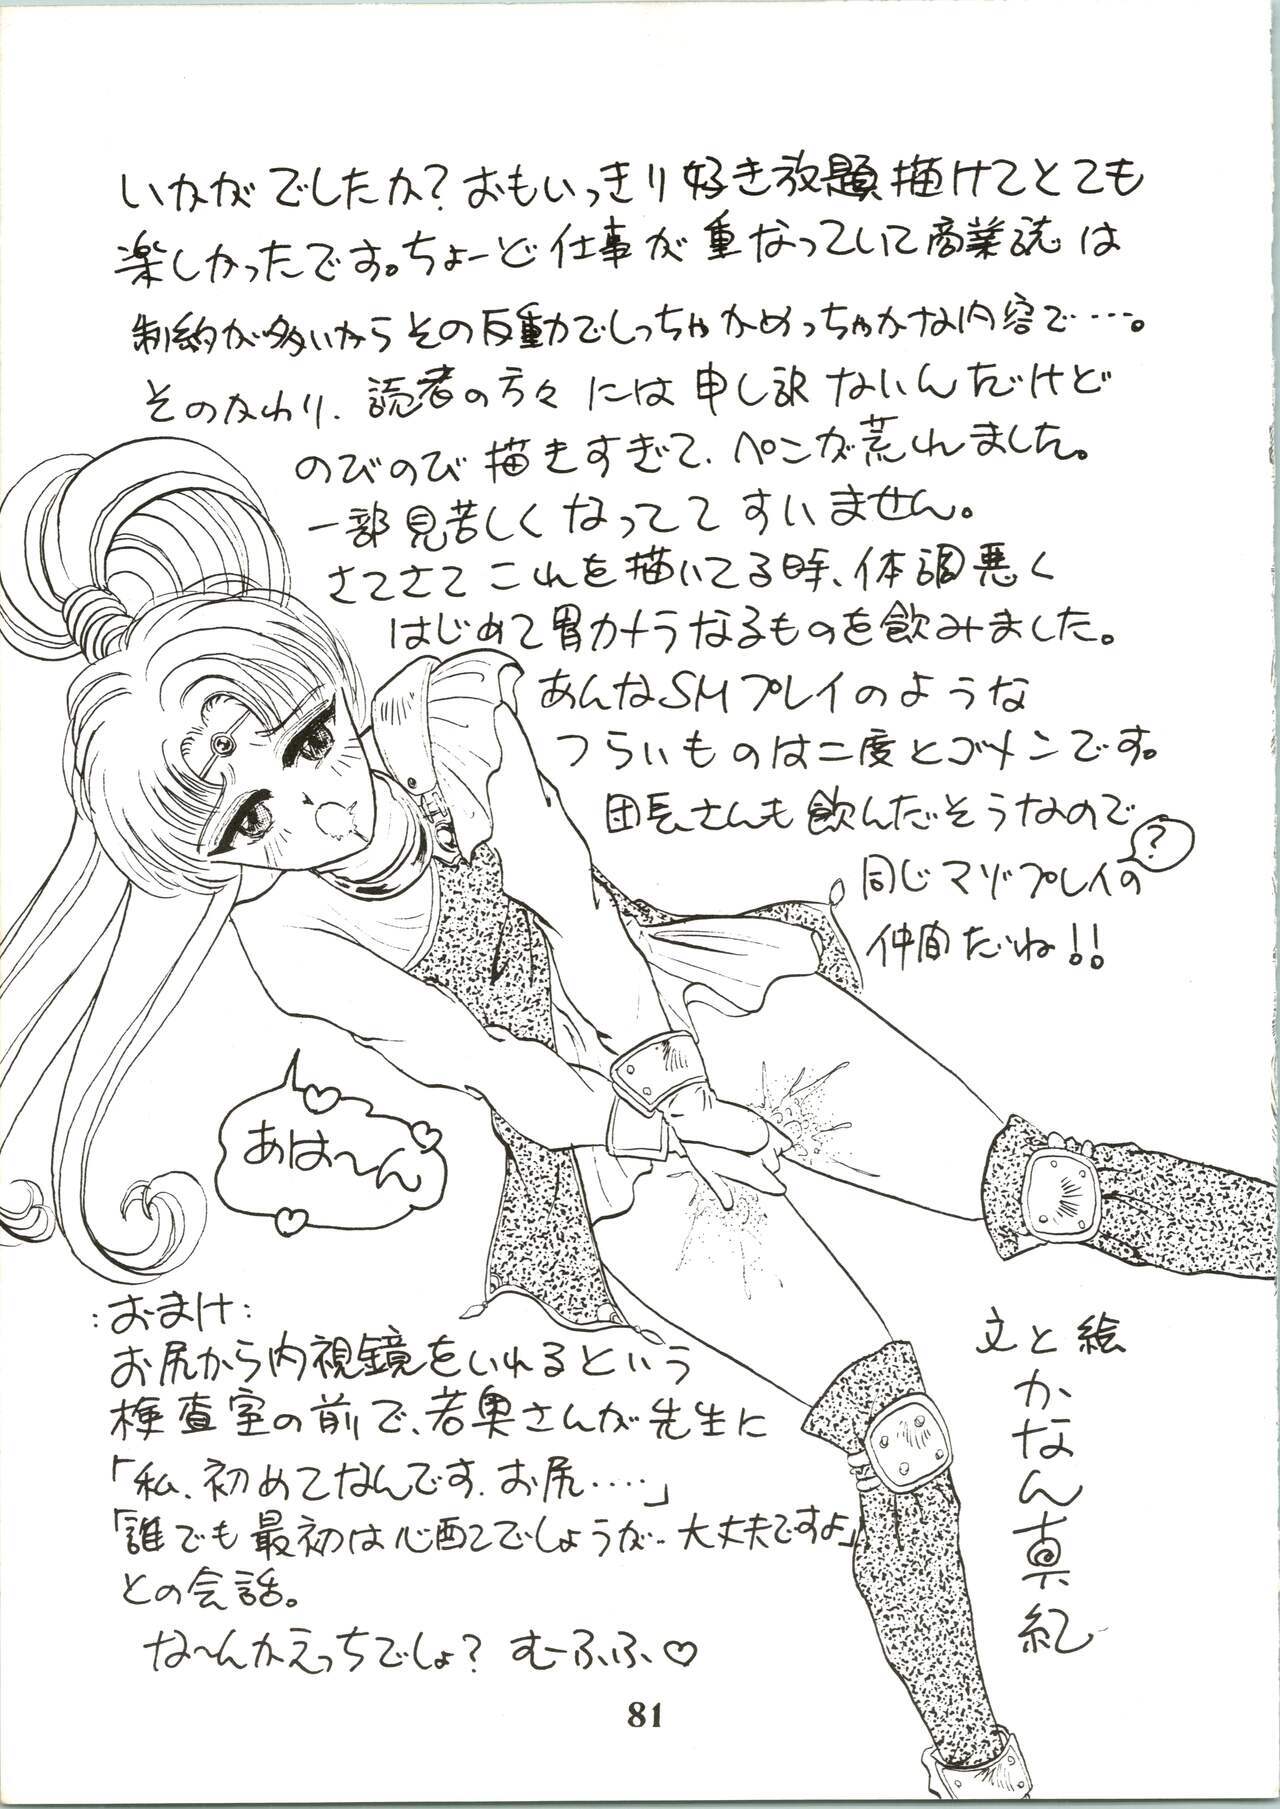 いかがでしたか?おもいっきり好き放題描けてとても
楽しかったです。ちょーど仕事が重なっていて商業誌は
制約が多いからその反動でしっちゃかめっちゃかな内容で……。
そのかわり、読者の方々には申し訳ないんだけど
のびのび描きすぎて、ペンが荒れました。
一部見苦しくなっててすいません。
さてさてこれを描いてる時、体調悪く
はじめて胃カメラなるものを飲みました。
あんなSMプレイのような
つらいものは二度とゴメンです。
団長さんも飲んだそうなので
同じマゾプレイの?
仲間だね!!
あは〜ん
:おまけ:
お尻から内視鏡をいれるという
検査室の前で、若奥さんが先生に
「私、初めてなんです、お尻……」
「誰でも最初は心配でしょうが‥大丈夫ですよ」
との会話。
な〜んかえっちでしょ?むーふふ♡
文と絵
かなん真紀
81